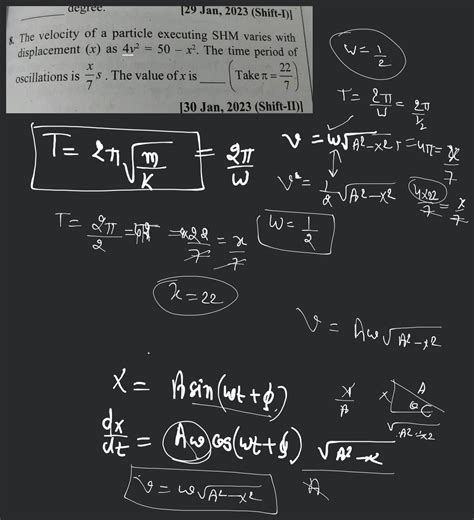 degree. [29 Jan, 2023 (Shift-I)]
8. The velocity of a particle executing SHM varies with
displacement (x) as 4v² = 50 – x². The time period of
oscillations is x/7 s. The value of x is ____ (Take π = 22/7)
[30 Jan, 2023 (Shift-II)]
W = 1/2
T = 2π/W = 2π/1/2
T = 2π√m/K = 2π/W
v = W√A²-x²
= 4π =
v² = 1/2 √A²-x²
4x22/7 = x/7
T = 2π/2
W = 1/2
22/7 = x/7
x = 22
v = Aω√A²-x²
X = A sin(ωt + ϕ)
x/A
A
X
√A²-x²
dx/dt = Aω cos(ωt + ϕ) √A²-x/A
v = ω√A²-x²